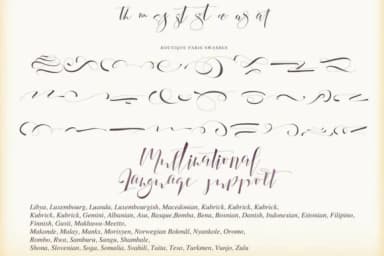 th m es st st e as at
BOUTIQUE PARIS SWASHES
Multinational
Language support
Libya, Luxembourg, Luanda, Luxembourgish, Macedonian, Kubrick, Kubrick, Kubrick,
Kubrick, Kubrick, Gemini, Albanian, Asu, Basque,Bemba, Bena, Bosnian, Danish, Indonesian, Estonian, Filipino,
Finnish, Gusii, Makhuwa-Meetto,
Makonde, Malay, Manks, Morisyen, Norwegian Bokmål, Nyankole, Oromo,
Rombo, Rwa, Samburu, Sangu, Shambale,
Shona, Slovenian, Soga, Somalia, Svahili, Taita, Teso, Turkmen, Vunjo, Zulu